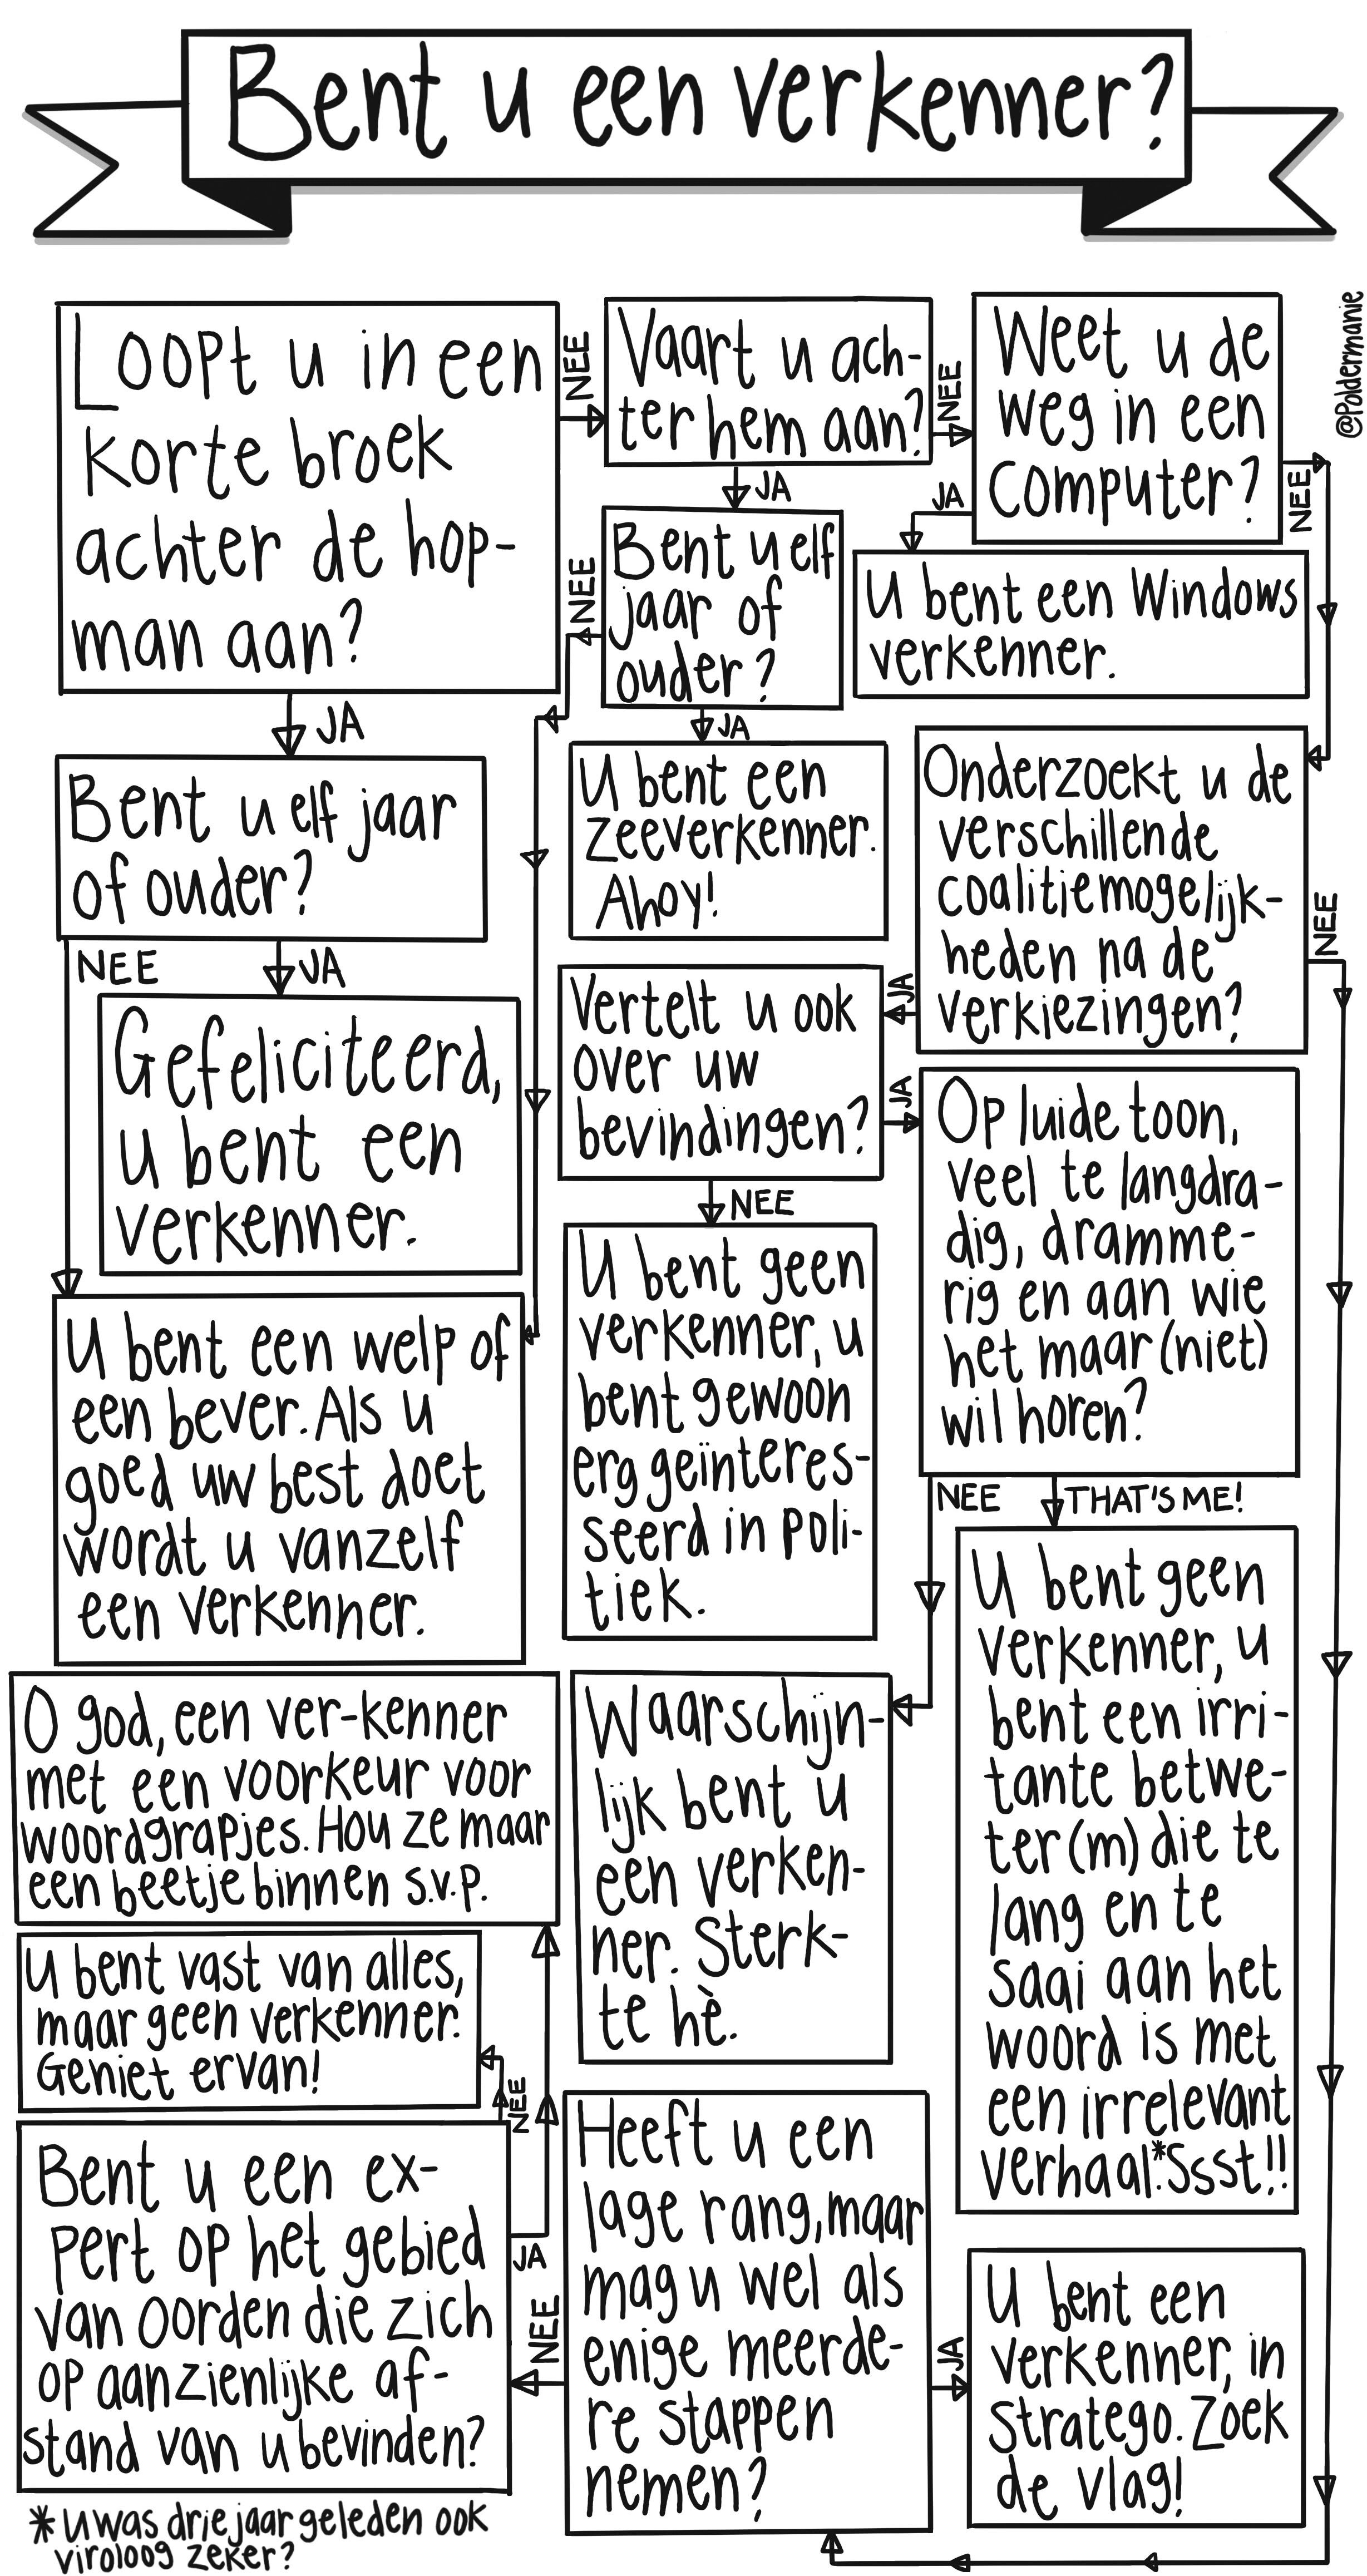 Bent u een verkenner?
@Poldermanie
Loopt u in een
korte broek
achter de hop-
man aan?
NEE
JA
Vaart u ach-
ter hem aan?
NEE
JA
Weet u de
weg in een
computer?
JA
NEE
U bent een Windows
verkenner.
Bent u elf
jaar of
ouder?
NEE
JA
U bent een
zeeverkenner.
Ahoy!
Bent u elf jaar
of ouder?
NEE
JA
Gefeliciteerd,
u bent een
verkenner.
U bent een welp of
een bever. Als u
goed uw best doet
wordt u vanzelf
een verkenner.
Onderzoekt u de
verschillende
coalitiemogelijk-
heden na de
verkiezingen?
JA
NEE
Vertelt u ook
over uw
bevindingen?
JA
NEE
U bent geen
verkenner, u
bent gewoon
erg geïnteres-
seerd in poli-
tiek.
Op luide toon,
veel te langdra-
dig, dramme-
rig en aan wie
het maar (niet)
wil horen?
NEE
THAT'S ME!
U bent geen
verkenner, u
bent een irri-
tante betwe-
ter(m) die te
lang en te
saai aan het
woord is met
een irrelevant
verhaal.* Ssst!!
Waarschijn-
lijk bent u
een verken-
ner. Sterk-
te hè.
O god, een ver-kenner
met een voorkeur voor
woordgrapjes. Hou ze maar
een beetje binnen s.v.p.
U bent vast van alles,
maar geen verkenner.
Geniet ervan!
NEE
Bent u een ex-
pert op het gebied
van oorden die zich
op aanzienlijke af-
stand van u bevinden?
JA
NEE
Heeft u een
lage rang, maar
mag u wel als
enige meerde-
re stappen
nemen?
JA
U bent een
verkenner, in
Stratego. Zoek
de vlag!
* U was drie jaar geleden ook
viroloog zeker?